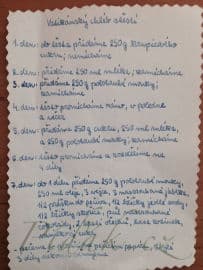 Vatikánský chléb štěstí
1. den: do těsta přidáme 250g krupicového
cukru, nemícháme
2. den: přidáme 250 ml mléka, nemícháme
3. den: přidáme 250g polohrubé mouky,
nemícháme
4. den: těsto promícháme ráno, v poledne
a večer
5. den: přidáme 250g cukru, 250 ml mléka,
a 250g polohrubé mouky, nemícháme
6. den: těsto promícháme a rozdělíme na
4 díly
7. den: do 1 dílu přidáme 250g polohrubé mouky,
250 ml oleje, 3 vejce, 2 nastrouhaná jablka,
1/2 prášku do pečiva, 1/2 lžičky jedlé sody,
1/2 lžičky skořice, půl nastrouhané
čokolády, 2 hrsti ořechů,
vanilkový cukr
pečicím papírem,
3 díly